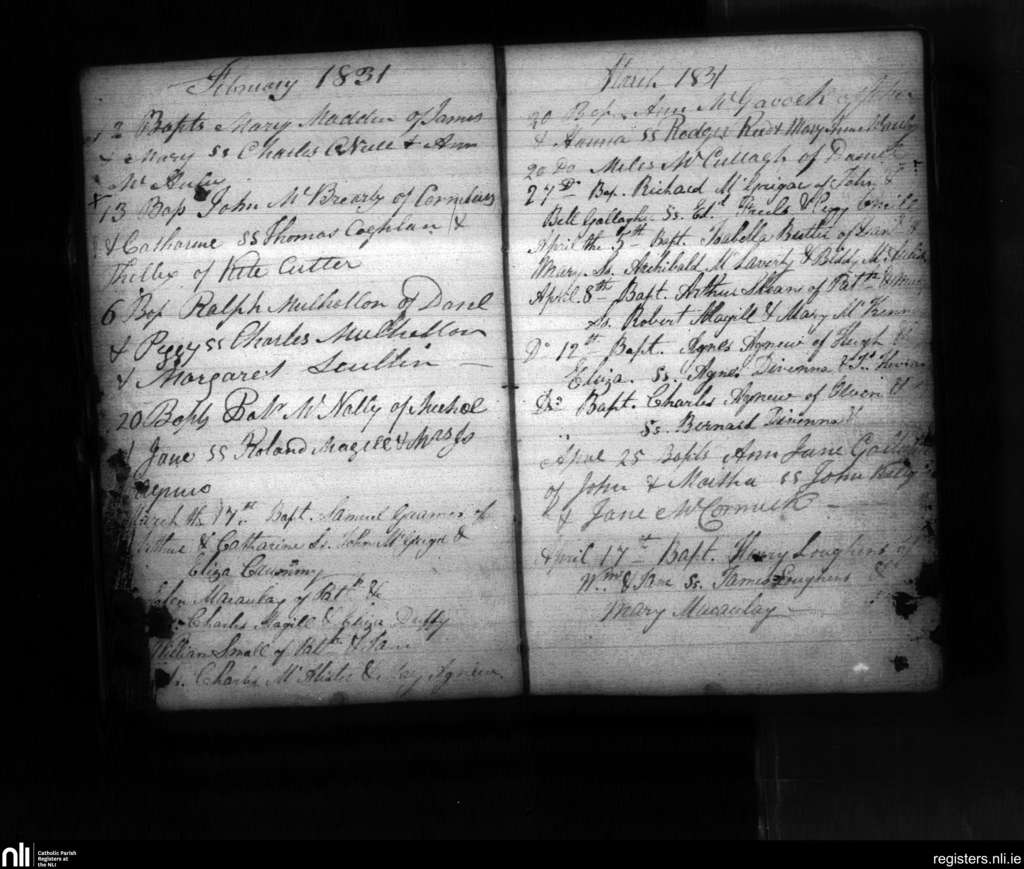 February 1831
12 Bapts Mary Madden of James
& Mary ss Charles ONeill & Ann
Mc
13 Bap John McBrearty of Cornelius
& Catharine ss Thomas Coghlan &
of Kite Cutter
6 Bap Ralph Mulhollon of Danl
& Peggy ss Charles Mulhollon
& Margaret Scullin
20 Bapts McNally of Michol
& Jane ss Roland Magill & Mary
Agnew
March the 17th Bapt. Samuel of
Arthur & Catharine Ss. John McGrigor &
Eliza Crummy
Macaulay of Patk &
Charles Magill & Eliza Duffy
William Small of Patk & Jane
Ss. Charles McAlister & Agnew
March 1831
20 Bap. Ann McGavock of John
& Hanna ss Rodger Reid & Mary Ann
20 Do Miles McCullagh of Daniel
27 Do Bap. Richard McGrigor of John &
Bell Gallagher Ss. Ed. & Peggy
April the 5th Bapt. Isabella of &
Mary. Ss. Archibald McLaverty & Biddy McAlister
April 8th Bapt. Arthur of Patk & Mary
Ss. Robert Magill & Mary McKenna
Do 12th Bapt. Agnes Agnew of Hugh &
Eliza. Ss. Agnes Divenna &
Do Bapt. Charles Agnew of &
Ss. Bernard Divenna
April 25 Bapts Ann Jane
of John & Martha ss John Kelly
& Jane McCormick
April 17th Bapt. Henry Loughens of
Wm. & Jane Ss. James Loughens &
Mary Macaulay
nli
Catholic Parish
Registers at
the NLI
registers.nli.ie